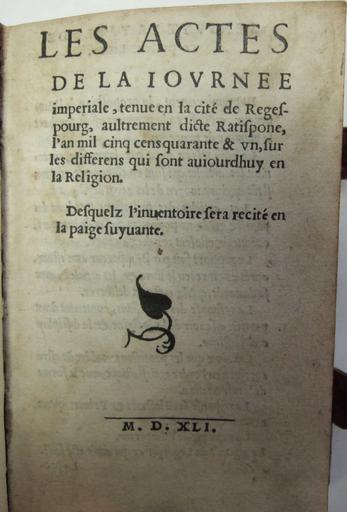 LES ACTES
DE LA IOVRNEE
imperiale, tenue en la cité de Regeſ-
pourg, aultrement dicte Ratiſpone,
l'an mil cinq cens quarante & vn, ſur
les differens qui ſont auiourdhuy en
la Religion.
Deſquelz l'inuentoire ſera recité en
la paige ſuyuante.
M. D. XLI.